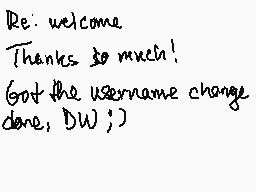 Re: welcome
Thanks so much!
Got the username change
done, DW ;)